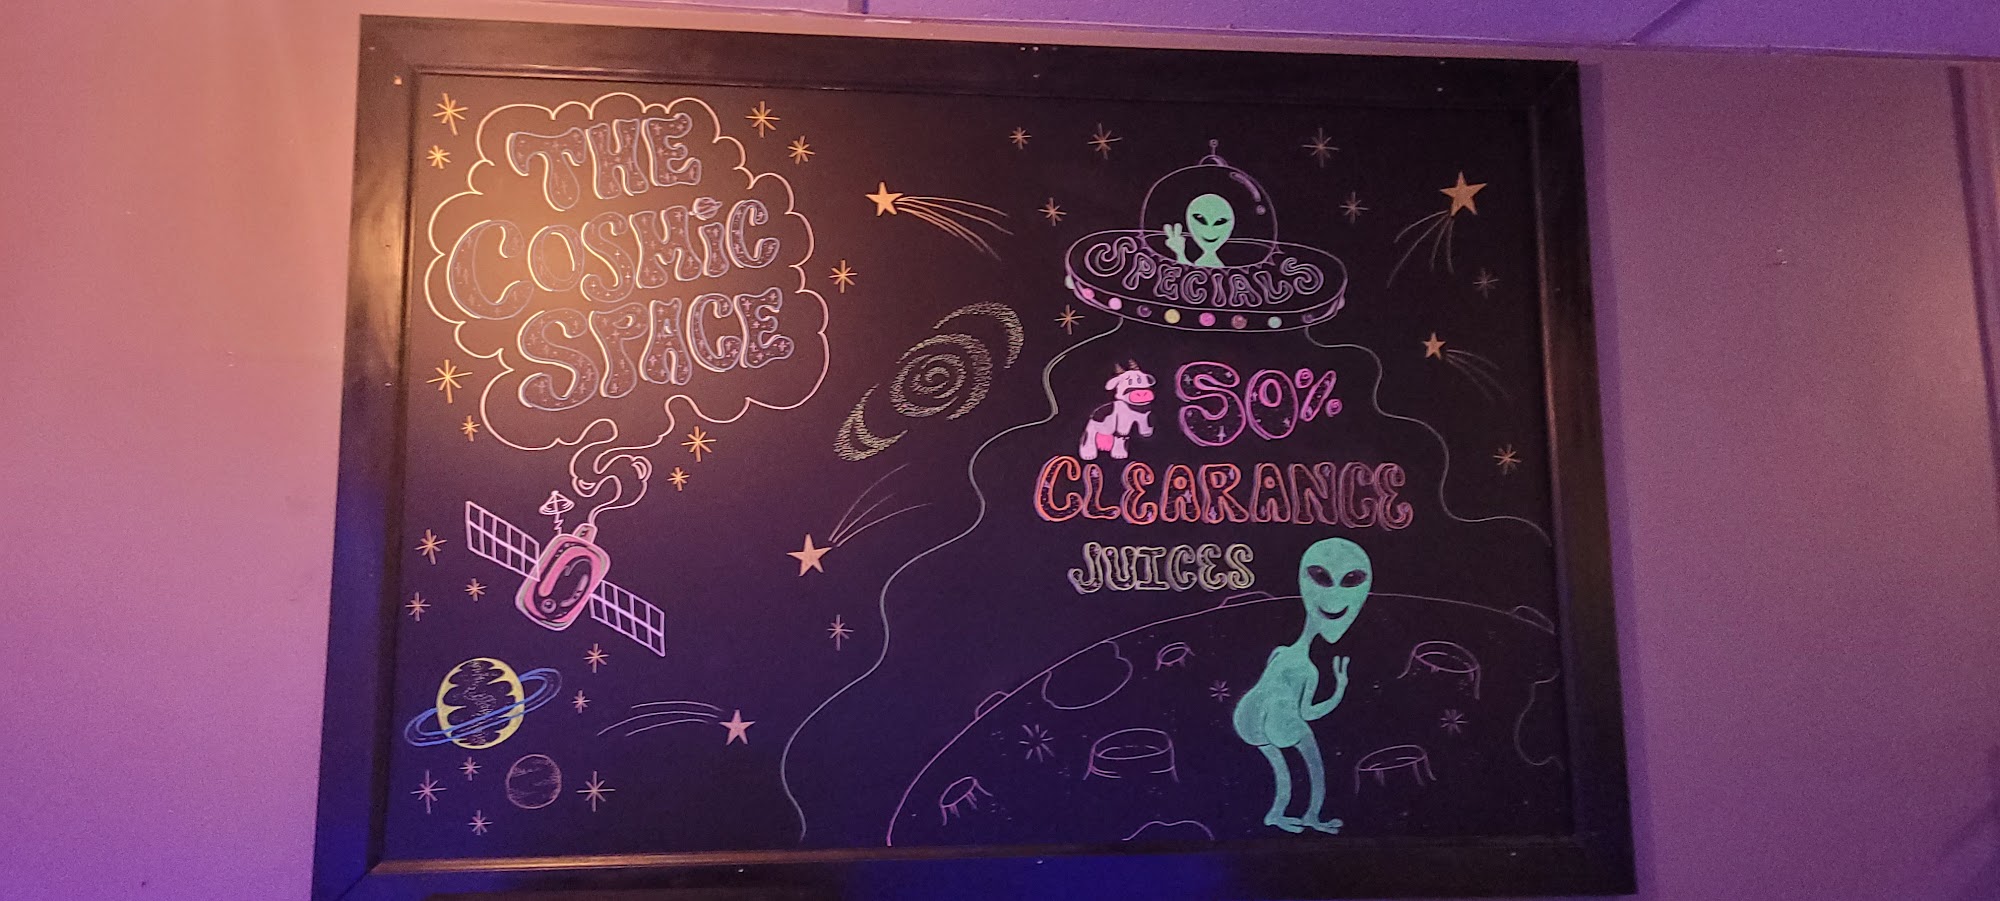 THE
COSMiC
SPACE
SPECIALS
50%
CLEARANCE
JUICES